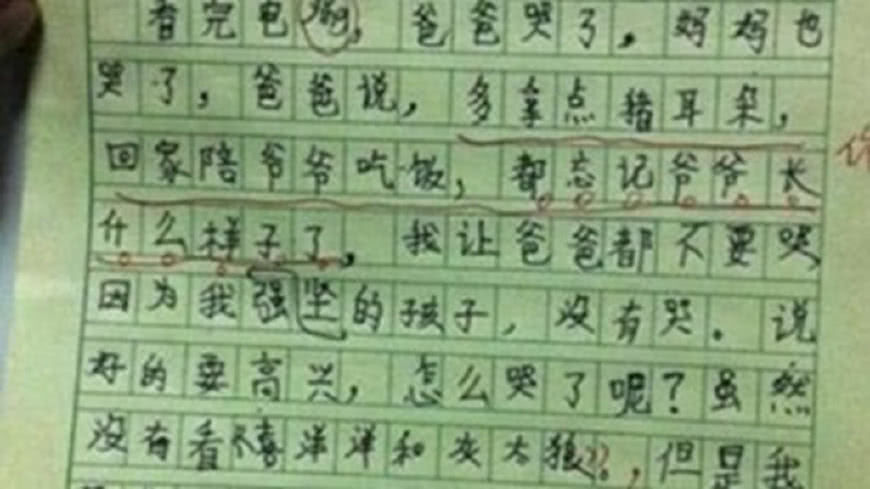 看完电影，爸爸哭了，妈妈也
哭了，爸爸说，多拿点猪耳朵，
回家陪爷爷吃饭，都忘记爷爷长
什么样子了，我让爸爸都不要哭，
因为我强坚的孩子，没有哭。说
好的要高兴，怎么哭了呢？虽然
没有看喜洋洋和灰太狼??，但是我